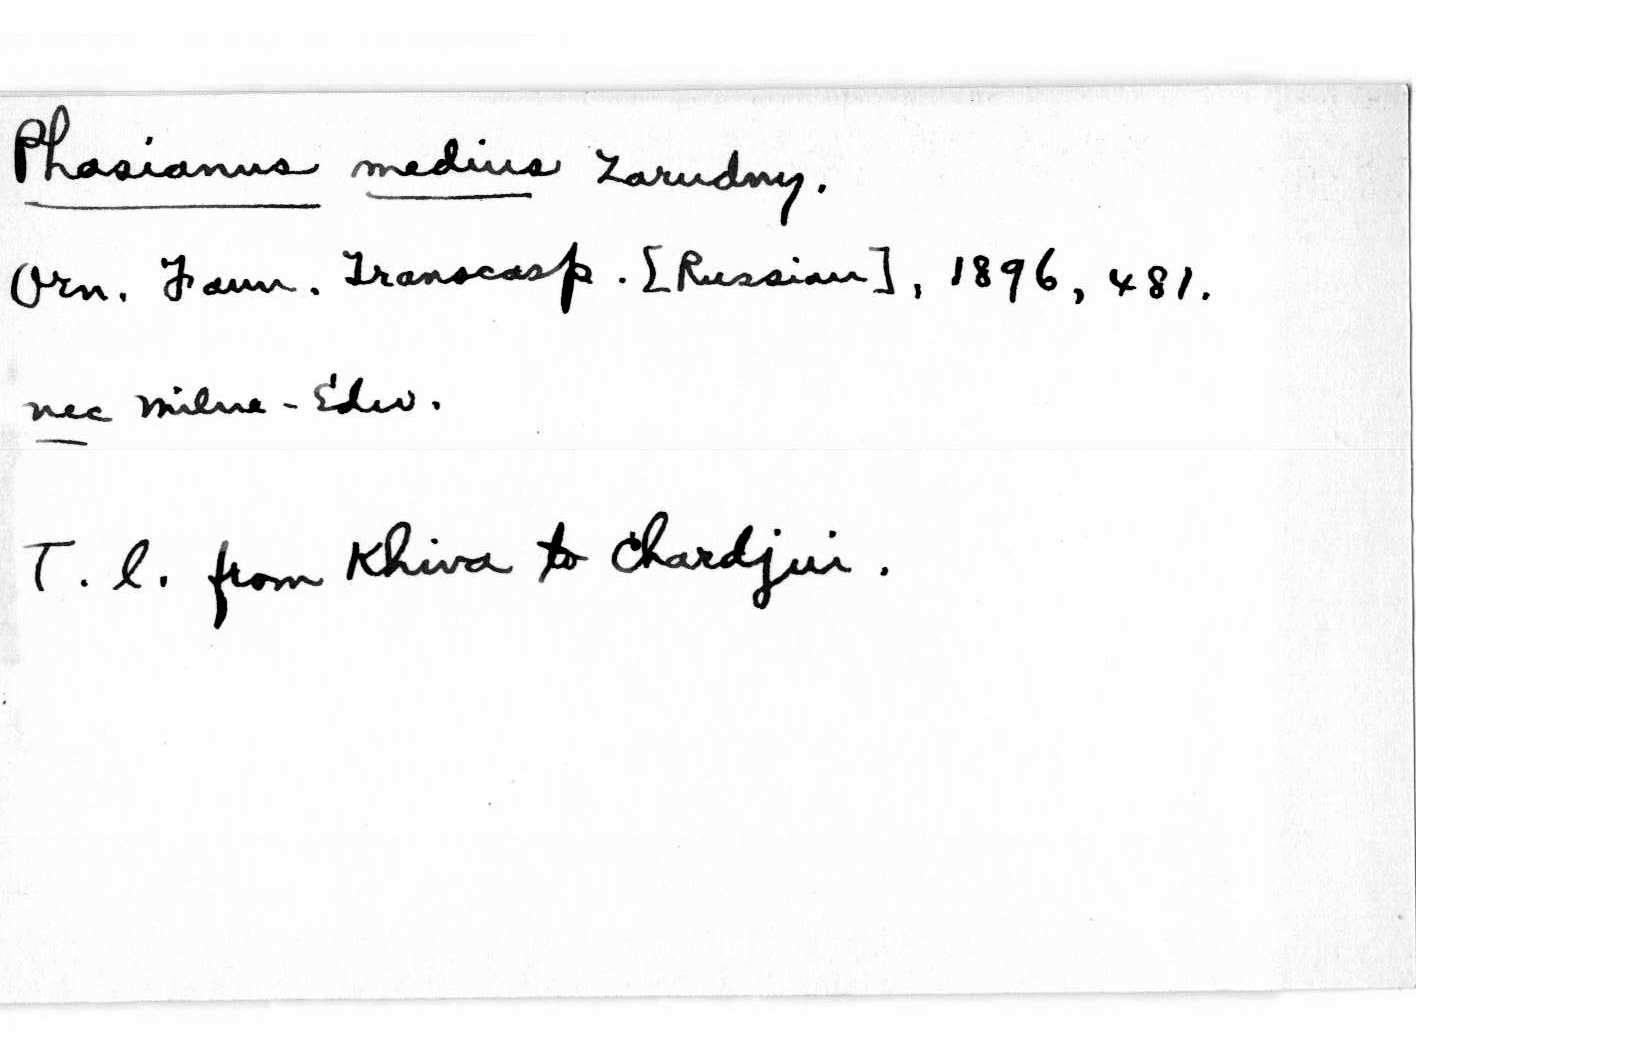 Phasianus medius Zarudny.
Orn. Faun. Transcasp. [Russian], 1896, 481.
nec Milne-Edw.
T. l. from Khiva to Chardjui.